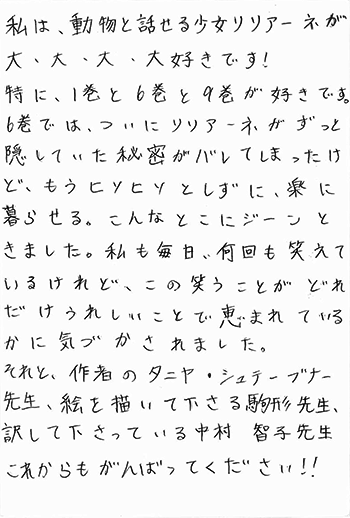 私は、動物と話せる少女リリアーネが
大、大、大、大好きです!
特に、1巻と6巻と9巻が好きです。
6巻では、ついにリリアーネがずっと
隠していた秘密がバレてしまったけ
ど、もうヒソヒソとしずに、楽に
暮らせる。こんなとこにジーンと
きました。私も毎日、何回も笑えて
いるけれど、この笑うことがどれ
だけうれしいことで恵まれている
かに気づかされました。
それと、作者のタニヤ・シュテーブナー
先生、絵を描いて下さる駒形先生、
訳して下さっている中村 智子先生
これからもがんばってください!!